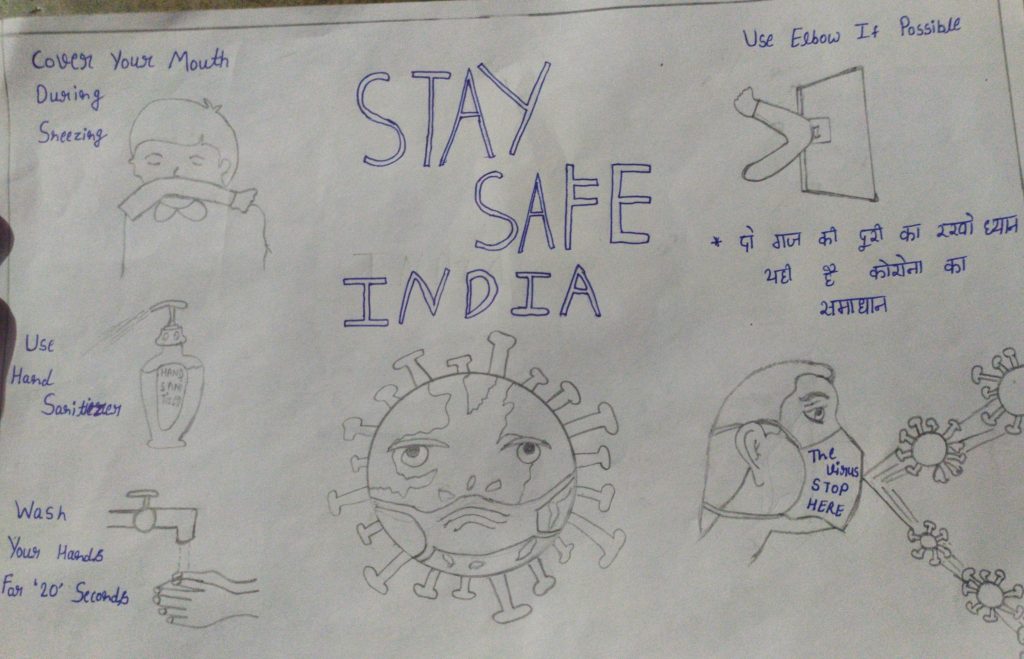 Cover Your Mouth
During
Sneezing
STAY
SAFE
INDIA
Use Elbow If Possible
* दो गज की दूरी का रखो ध्यान
यही है कोरोना का
समाधान
Use
Hand
Sanitizer
HAND
SANI
The
Virus
STOP
HERE
Wash
Your Hands
For '20' Seconds